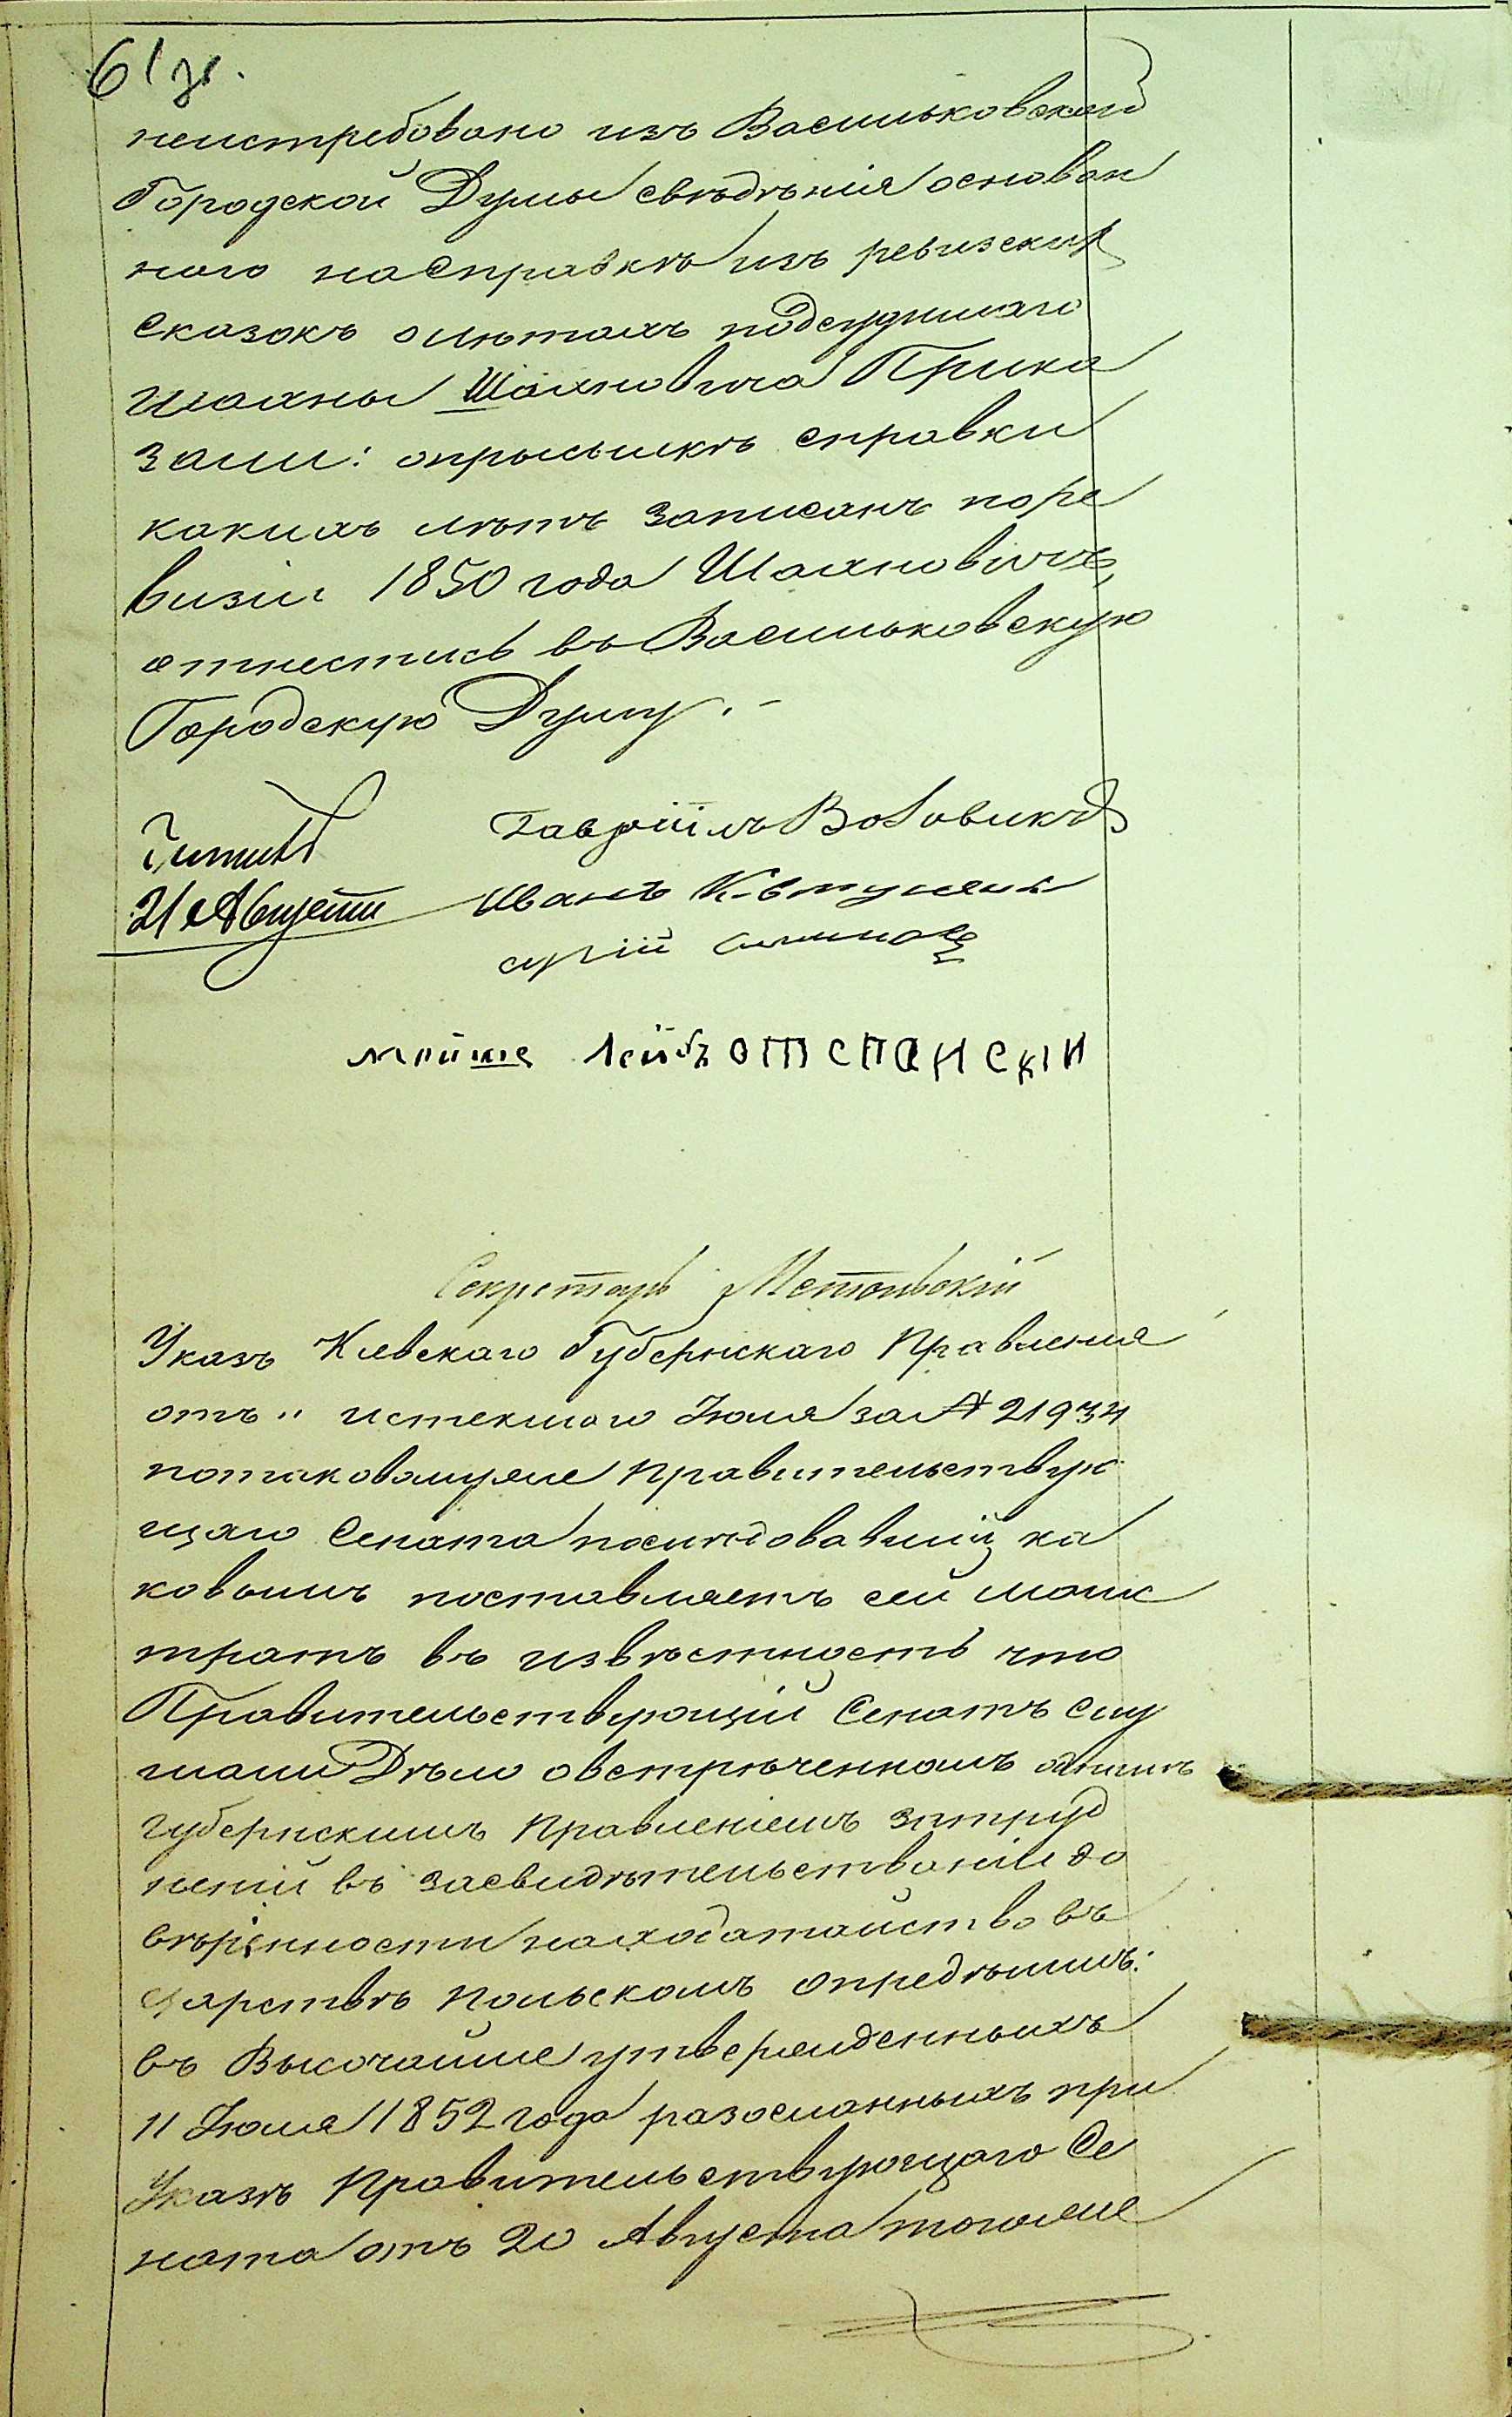 61 зв.
неистребовано изъ Васильковской
Городской Думы свѣдѣнія основан
наго на Справкѣ изъ ревизских
сказокъ о лѣтахъ подсудимаго
Шахновича Прика
зали: о справки
какихъ лѣтъ записанъ поре
визіи 1850 года Шахновичъ
отнестись въ Васильковскую
Городскую Думу.-
Читалъ
Гавріилъ
21 Августа
Иванъ
мойше лейбъ
Секретарь
Указъ Кіевскаго Губернскаго Правленія
отъ " истекшаго Іюля за № 21934
потаковомуже Правительствую
щаго Сената послѣдовавшій ка
ковымъ поставляетъ сей Магис
тратъ въ извѣстность что
Правительствующій Сенатъ слу
шали Дѣло овстрѣченномъ
Губернскимъ Правленіемъ затруд
неніи въ засвидѣтельствованіи до
вѣренности находатайство въ
Царствѣ Польскомъ Опредѣлилъ:
въ Высочайше утвержденныхъ
11 Іюля 1852 года разосланныхъ при
Указѣ Правительствующаго Се
ната отъ 20 Августа тогоже